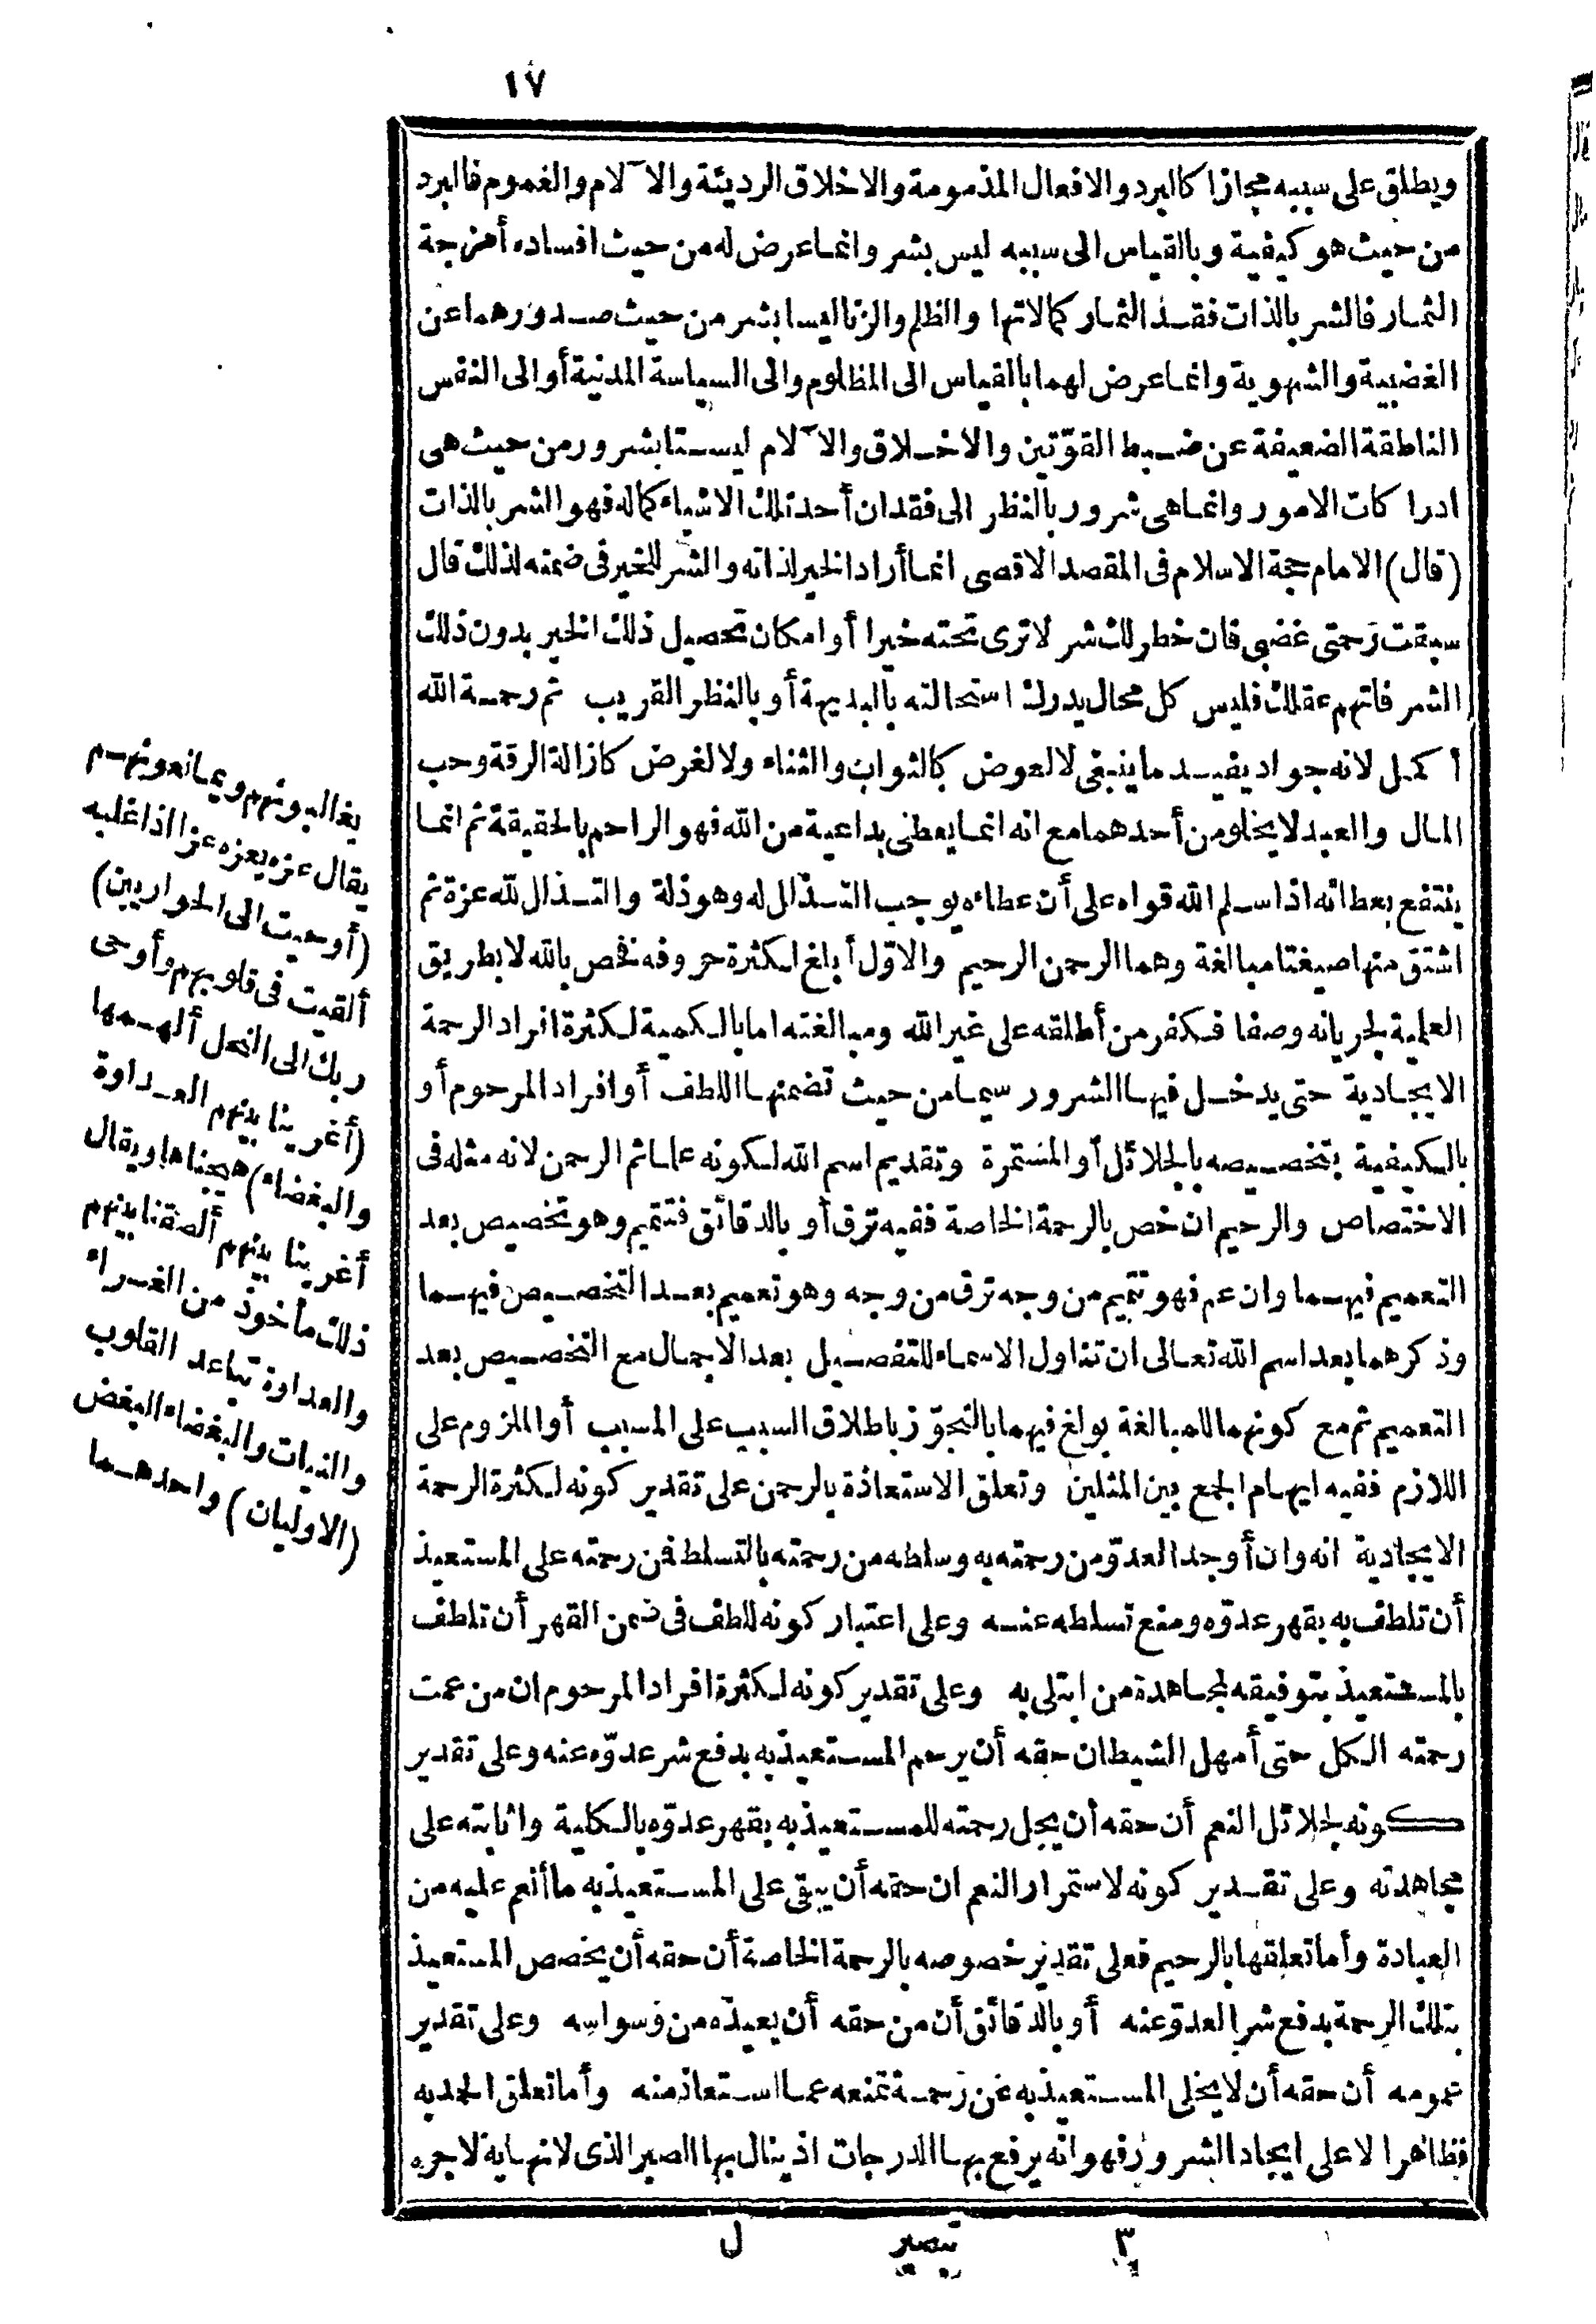 ١٧
ويطلق على سببه مجازا كالبرد والافعال المذمومة والاخلاق الرديئة والا ّلام والغموم فالبرد
من حيث هو كيفية وبالقياس الى سببه ليس بشر وانما عرض له من حيث افساده أمزجة
الثمار فالشر بالذات فقد الثمار كمالاتها والظلم والزنا ليسا بشر من حيث صدورهما عن
الغضبية والشهوية وانما عرض لهما بالقياس الى المظلوم والى السياسة المدنية أو الى النفس
الناطقة الضعيفة عن ضبط القوّتين والاخلاق والا ّلام ليستا بشرور من حيث هى
ادراكات الامور وانما هى شرور بالنظر الى فقدان أحد تلك الاشياء كماله فهو الشر بالذات
(قال) الامام حجة الاسلام فى المقصد الاقصى انما أراد الخير لذاته والشر للخير فى ضمنه لذلك قال
سبقت رحمتى غضبى فان خطر لك شر لا ترى تحته خيرا أو امكان تحصيل ذلك الخير بدون ذلك
الشر فاتهم عقلك فليس كل محال يدرك استحالته بالبديهة أو بالنظر القريب ثم رحمة الله
أكمل لانه جواد يفيد ما ينبغى لا لعوض كالثواب والثناء ولا لغرض كازالة الرقة وحب
المال والعبد لا يخلو من أحدهما مع انه انما يعطى بداعية من الله فهو الراحم بالحقيقة ثم انما
ينتفع بعطائه اذا سلم الله قواه على أن عطاءه يوجب التذلل له وهو ذلة والتذلل لله عزة ثم
اشتق منها صيغتا مبالغة وهما الرحمن الرحيم والاوّل أبلغ لكثرة حروفه فخص بالله لا بطريق
العلمية لجريانه وصفا فكفر من أطلقه على غير الله ومبالغته اما بالكمية لكثرة افراد الرحمة
الايجادية حتى يدخل فيها الشرور سيما من حيث تضمنها اللطف أو افراد المرحوم أو
بالكيفية بتخصيصه بالجلائل أو المستمرة وتقديم اسم الله لكونه علما ثم الرحمن لانه مثله فى
الاختصاص والرحيم ان خص بالرحمة الخاصة ففيه ترق أو بالدقائق فتتميم وهو تخصيص بعد
التعميم فيهما وان عم فهو تتميم من وجه ترق من وجه وهو تعميم بعد التخصيص فيهما
وذكرهما بعد اسم الله تعالى ان تناول الاسماء للتفصيل بعد الاجمال مع التخصيص بعد
التعميم ثم مع كونهما للمبالغة بولغ فيهما بالتجوّز باطلاق السبب على المسبب أو الملزوم على
اللازم ففيه ايهام الجمع بين المثلين وتعلق الاستعاذة بالرحمن على تقدير كونه لكثرة الرحمة
الايجادية انه وان أوجد العدوّ من رحمته به وسلطه من رحمته بالتسلط فمن رحمته على المستعيذ
أن تلطف به بقهر عدوّه ومنع تسلطه عنه وعلى اعتبار كونه للطف فى ضمن القهر أن تلطف
بالمستعيذ بتوفيقه لمجاهدة من ابتلى به وعلى تقدير كونه لكثرة افراد المرحوم ان من عمت
رحمته الكل حتى أمهل الشيطان حقه أن يرحم المستعيذ به بدفع شر عدوّه عنه وعلى تقدير
كونه لجلائل النعم أن حقه أن يجل رحمته للمستعيذ به بقهر عدوّه بالكلية واثابته على
مجاهدته وعلى تقدير كونه لاستمرار النعم ان حقه أن يبقى على المستعيذ به ما أنعم عليه من
العبادة وأما تعلقها بالرحيم فعلى تقدير خصوصه بالرحمة الخاصة أن حقه أن يخصص المستعيذ
بتلك الرحمة بدفع شر العدوّ عنه أو بالدقائق أن من حقه أن يعيذه من وسواسه وعلى تقدير
عمومه أن حقه أن لا يخلى المستعيذ به عن رحمة تمنعه عما استعاذ منه وأما تعلق الحمد به
فظاهر الا على ايجاد الشرور فهو انه يرفع بها الدرجات اذ ينال بها الصبر الذى لا نهاية لاجره
يغالبونهم ويمانعونهم
يقال عزه يعزه عزا اذا غلبه
(أوحيت الى الحواريين)
ألقيت فى قلوبهم وأوحى
ربك الى النحل ألهمها
(أغرينا بينهم العداوة
والبغضاء) هيجناها ويقال
أغرينا بينهم ألصقنا بينهم
ذلك مأخوذ من الغراء
والعداوة تباعد القلوب
والنيات والبغضاء البغض
(الاوليان) واحدهما
٣ تبصير ل